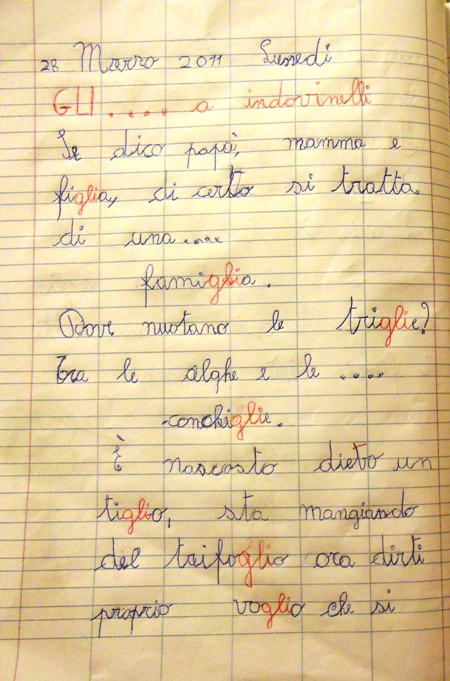 28 Marzo 2011 Lunedì
GLI ..... a indovinelli
Se dico papà, mamma e
figlia, di certo si tratta
di una....
famiglia.
Dove nuotano le triglie?
Tra le alghe e le ....
conchiglie.
È nascosto dieto un
tiglio, sta mangiando
del trifoglio ora dirti
proprio voglio che si